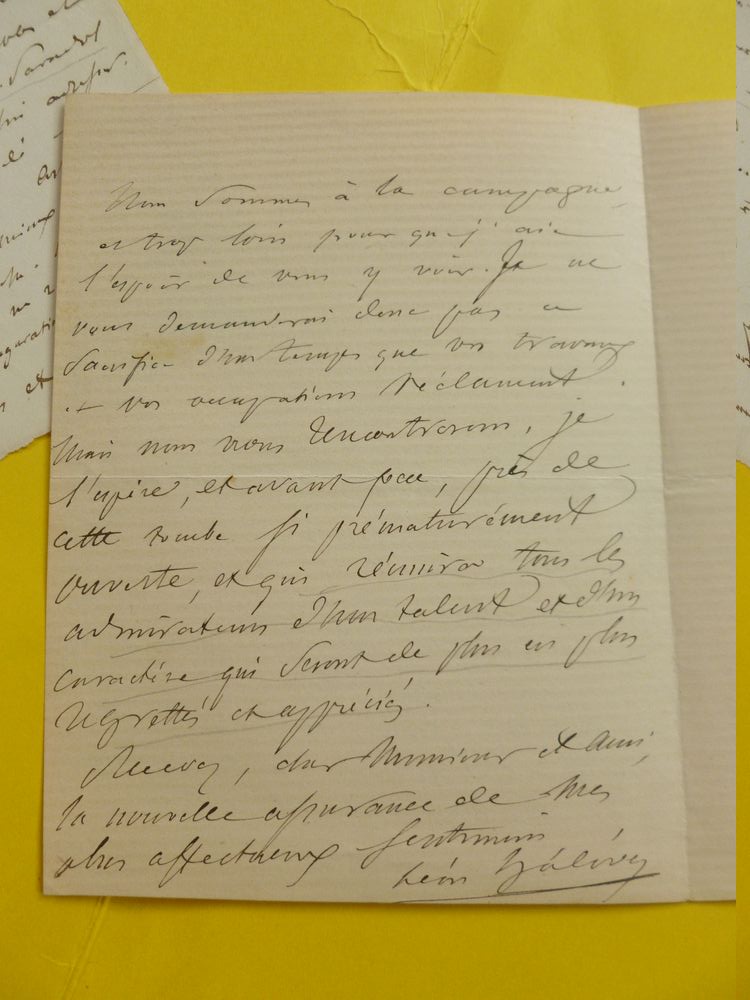 Nous sommes à la campagne,
et trop loin pour que j'aie
l'espoir de vous y voir. Je ne
vous demanderai donc pas ce
sacrifice d'un temps que vos travaux
et vos occupations réclament.
Mais nous nous rencontrerons, je
l'espère, et avant peu, près de
cette tombe si prématurément
ouverte, et qui réunira tous les
admirateurs d'un talent et d'un
caractère qui seront de plus en plus
regrettés et appréciés.
Recevez, cher Monsieur et ami,
la nouvelle assurance de mes
plus affectueux sentimens
Léon Halévy